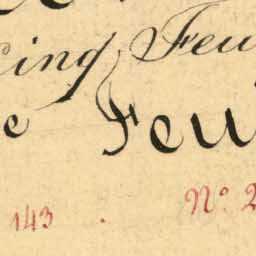 cinq Feu
e Feu
143 . Nº 2